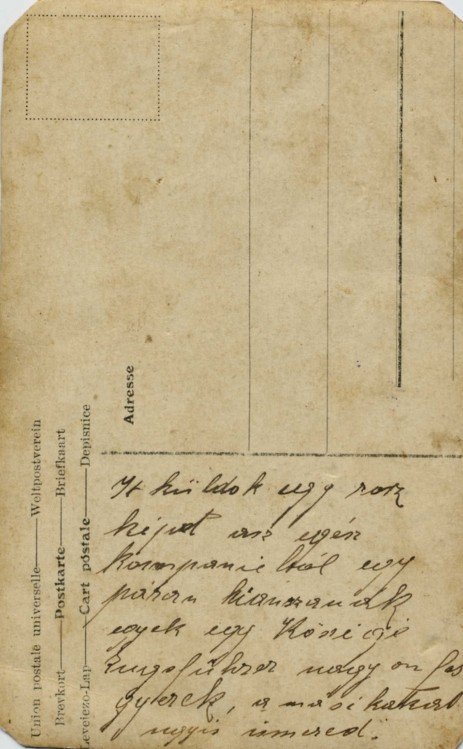 Union postale universelle — Weltpostverein
Brevkort — Postkarte — Briefkaart
Levelezo-Lap — Cart postale — Depisnice
Adresse
It küldok egy rosz
képet asz egész
kompanieból egy
páran hianzanak
egyek egy Köségi
Zugsführer nagyon
gyerek, a másikakat
ugyis ismered.